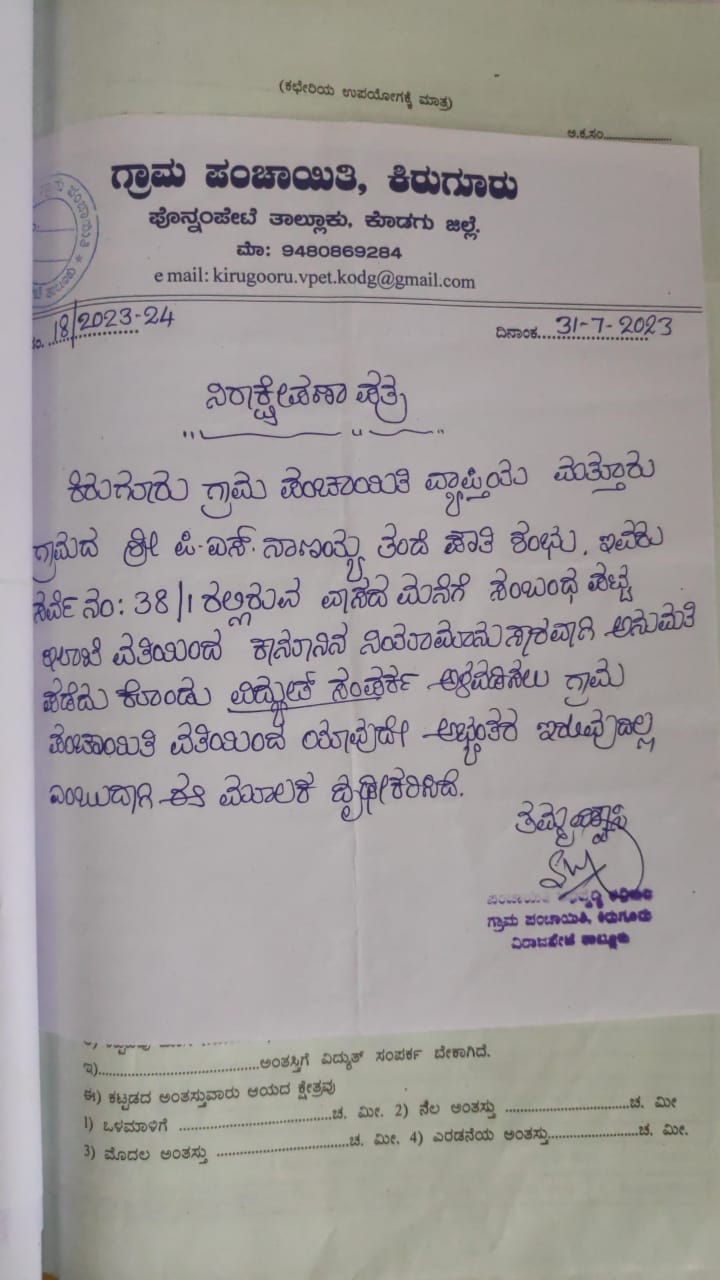 (ಕಛೇರಿಯ ಉಪಯೋಗಕ್ಕೆ ಮಾತ್ರ)
ಅ.ಕ್ರ.ಸಂ.
ಗ್ರಾಮ ಪಂಚಾಯಿತಿ, ಕಿರುಗೂರು
ಪೊನ್ನಂಪೇಟೆ ತಾಲ್ಲೂಕು, ಕೊಡಗು ಜಿಲ್ಲೆ.
ಮೊ: 9480869284
e mail: kirugooru.vpet.kodg@gmail.com
ಸಂ. 18/2023-24 ದಿನಾಂಕ 31-7-2023
ನಿರಾಕ್ಷೇಪಣಾ ಪತ್ರ
ಕಿರುಗೂರು ಗ್ರಾಮ ಪಂಚಾಯಿತಿ ವ್ಯಾಪ್ತಿಯ ಮತ್ತೂರು
ಗ್ರಾಮದ ಶ್ರೀ ಪಿ.ಎಸ್. ನಾಣಯ್ಯ ತಂದೆ ಶಂಭು, ಇವರು
ಸರ್ವೆ ನಂ: 38/1 ರಲ್ಲಿರುವ ವಾಸದ ಮನೆಗೆ ಸಂಬಂಧ ಪಟ್ಟ
ಇಲಾಖೆ ವತಿಯಿಂದ ಕಾನೂನಿನ ನಿಯಮಾನುಸಾರವಾಗಿ ಅನುಮತಿ
ಪಡೆದು ಕೊಂಡು ವಿದ್ಯುತ್ ಸಂಪರ್ಕ ಅಳವಡಿಸಲು ಗ್ರಾಮ
ಪಂಚಾಯಿತಿ ವತಿಯಿಂದ ಯಾವುದೇ ಅಭ್ಯಂತರ ಇರುವುದಿಲ್ಲ
ಎಂಬುದಾಗಿ ಈ ಮೂಲಕ ದೃಢೀಕರಿಸಿದೆ.
ತಮ್ಮ ವಿಶ್ವಾಸಿ
ಗ್ರಾಮ ಪಂಚಾಯಿತಿ, ಕಿರುಗೂರು
ವಿರಾಜಪೇಟೆ ತಾಲ್ಲೂಕು
ಇ)..............................ಅಂತಸ್ತಿಗೆ ವಿದ್ಯುತ್ ಸಂಪರ್ಕ ಬೇಕಾಗಿದೆ.
ಈ) ಕಟ್ಟಡದ ಅಂತಸ್ತುವಾರು ಆಯದ ಕ್ಷೇತ್ರವು
1) ಒಳಮಾಳಿಗೆ ..............................ಚ. ಮೀ. 2) ನೆಲ ಅಂತಸ್ತು ..............................ಚ. ಮೀ
3) ಮೊದಲ ಅಂತಸ್ತು ..............................ಚ. ಮೀ. 4) ಎರಡನೆಯ ಅಂತಸ್ತು......................ಚ. ಮೀ.